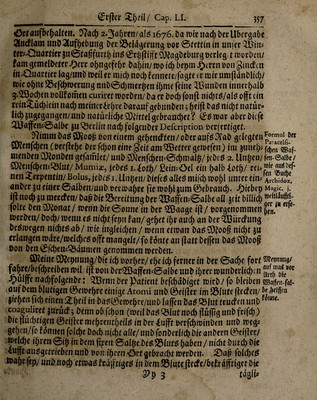 Erster Theil/ Cap. LI. 357
Ort auffbehalten. Nach 2. Jahren/ als 1676. da wie nach der Ubergabe
Ancklam und Auffhebung der Belägerung vor Stettin in unser Win-
ter-Quartier zu Staßfurth ins Ertzstifft Magdeburg verlegt worden/
kam gemeldeter Herr ohngefehr dahin/ wo ich beym Herrn von Zinck in
in Quartier lag/ und weil er mich noch kennete/ sagte er mir umständlich/
wie ohne Beschwerung und Schmertzen ihme seine Wunden innerhalb
3. Wochen vollkommen curiret worden/ da er doch sonst nichts/ als offt ein
rein Tüchlein nach meiner Lehre darauf gebunden; heist das nicht natür-
lich zugegangen/ und natürliche Mittel gebrauchet? Es war aber diese
Waffen-Salbe zu Berlin nach folgender Description verfertiget.
Nimm das Mooß von einem gehenckten/ oder aufs Rad gelegten
Menschen (verstehe der schon eine Zeit am Wetter gewesen) im zuneh-
menden Monden gesamlet/ und Menschen-Schmaltz/ jedes 2. Untzen/
Menschen-Blut/ Mumiæ, jedes 1. Loth/ Lein-Oel ein halb Loth/ rei-
nen Terpentin/ Bolus, jedes 1. Untzen/ dieses alles misch wohl unter ein-
ander zu einer Salben/ und verwahre sie wohl zum Gebrauch. Hiebey
ist noch zu mercken/ daß die Bereitung der Waffen-Salbe all zeit billich
solte den Monat/ wenn die Sonne in der Waage ist/ vorgenommen
werden/ doch/ wenn es nicht seyn kan/ gehet ihr auch an der Würckung
deswegen nichts ab/ wie ingleichen/ wenn etwan das Mooß nicht zu
erlangen wäre/ welches offt mangelt/ so könte an statt dessen das Mooß
von den Eschen-Bäumen genommen werden.
Formul der
Paracelsi-
schen Waf-
fen-Salbe/
wie aus des-
sen Buche
Archidox.
Magic. j.
weitläufti-
ger zu erse-
hen.
Meine Meynung/ die ich vorher/ ehe ich ferner in der Sache fort
fahre/ beschreiben wil ist von der Waffen-Salbe und ihrer wunderlichen
Hülffe nachfolgende: Wenn der Patient beschädiget wird/ so bleiben
auf dem blutigen Gewehre einige Atomi und Geister im Blute stecken/
ziehen sich einen Theil in das Gewehre/ und lassen das Blut trucken und
coaguliret zurück; denn ob schon (weil das Blut noch flüssig und frisch)
die flüchtigen Geister mehrentheils in der Lufft verschwinden und weg-
gehen/ so können solche doch nicht alle/ und sonderlich die andern Geister/
welche ihren Sitz in dem firen Saltze des Bluts haben/ nicht durch die
Lufft ausgetrieben und von ihren Ort gebracht werden. Daß solches
wahr sey/ und noch etwas kräfftiges in dem Blute stecke/ bekräfftiget die
Meynung/
auf was vor
Arth die
Waffen-sal-
be helffen
könne.
Yy 3 tägli-